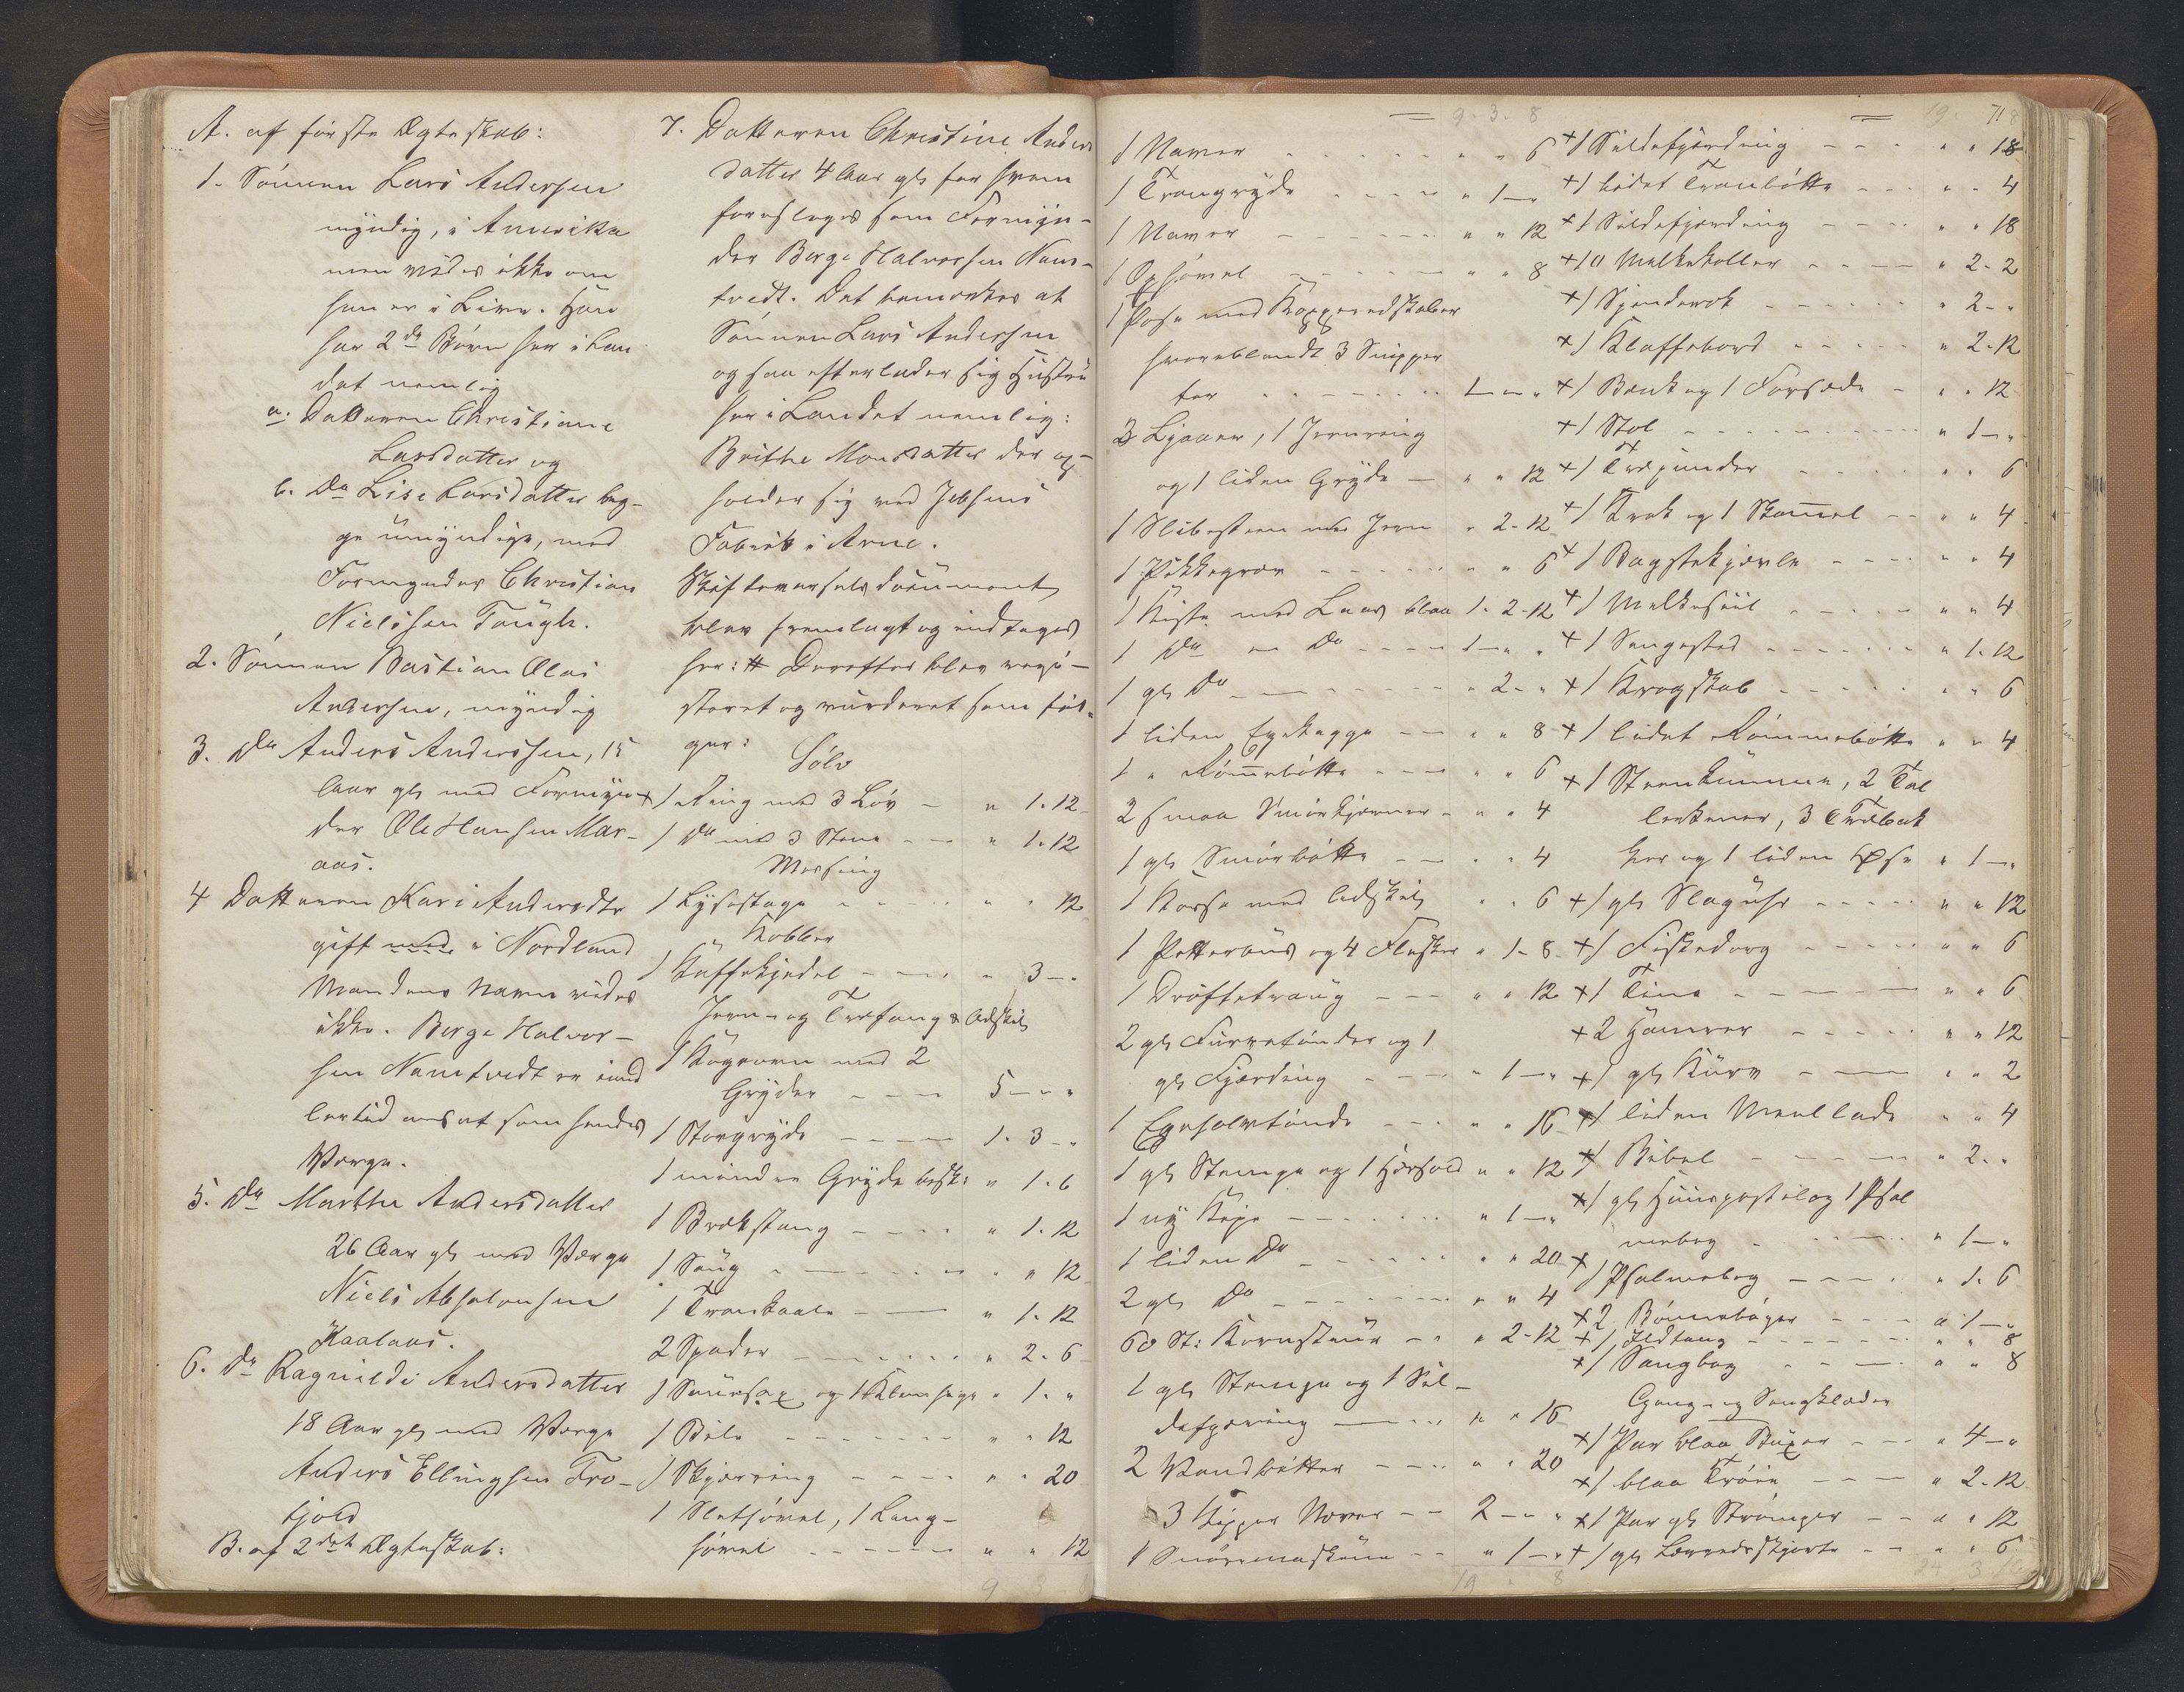 A. af første Ægteskab:
1. Sønnen Lars Andersen
myndig, i Amerika
men vides ikke om
han er i Live. Han
har 2de Børn her i Lan
det nemlig
a. Datteren Christiane
Larsdatter og
b. Do Lise Larsdatter beg-
ge umyndige, med
Formynder Christian
Nielssen Tough.
2. Sønnen Bastian Olai
Andersen, myndig
3. Do Anders Anderssen, 15
Aar gl. med Formyn-
der Ole Hansen Mar-
aas.
4 Datteren Kari Andersdtr
gift med i Nordland
Mandens Navn vides
ikke. Berge Halvor-
sen Namtvedt er imid
lertid ansat som hendes
Verge.
5. Do Marthe Andersdatter
26 Aar gl med Verge
Niels Absalonsen
Haalaas.
6. Do Ragnilde Andersdatter
18 Aar gl med Verge
Anders Ellingsen Fro-
tjold
B. af 2det Ægteskab:
7. Datteren Christine Anders
datter 4 Aar gl. for hvem
foreslages som Formyn-
der Berge Halvorsen Nam-
tvedt. Det bemærkes at
Sønnen Lars Andersen
ogsaa efterlader sig Hustru
her i Landet nemlig:
Brithe Monsdatter der op-
holder sig ved Jebsens
Fabrik i Arne.
Skifteværselsdocument
blev fremlagt og indtages
her: # Derefter blev regi-
streret og vurderet som føl-
ger:
Sølv
+ 1 Ring med 3 Løv - " 1. 12
1 Do med 3 Stene - - " 1. 12
Messing
1 Lysestage - - - " " 12
Kobber
1 Kaffekjedel - - - " 3 - "
Jern- og Træfang & Adskil
1 Kogeovn med 2
Gryder - - - 5 - - "
1 Storgryde - - - 1. 3 - "
1 mindre Gryde besk: " 1. 6
1 Brækstang - - - " 1. 12
1 Saug - - - " " 12
1 Trankande - - " 1. 12
2 Spader - - - " 2. 6
1 Sausax og 1 " 1. "
1 Bile - - - " " 12
1 Skjæreting - - - " " 20
1 Slethøvel, 1 Lang-
høvel - - - " " 12
9 3 8
= 9. 3. 8
1 Naver - - - " " 6
1 Trangryde - - - " 1 - "
1 Naver - - - " " 12
1 Ophøvel - - - " " 8
1 Pose med Kopperedskaber
hvoriblandt 3 Snepper
ter - - - 1 - - "
3 Ljaaer, 1 Jernring
og 1 liden Gryde - " " 12
1 Slibesteen med Jern " 2. 12
1 Pikkegrev - - - " " 6
1 Kiste med Laas blaa 1. 2. 12
1 Do - Do - - - 1 - " "
1 gl Do - - - " 2 - "
1 liden Egekagge - - " " 8
1 " Rømmebøtte - - - " " 6
2 smaa Smørkjerner - " " 4
1 gl Smørbøtte - - " " 4
1 Kasse med Adskil " " 6
1 og 4 Flasker " 1. 8
1 Drøftetraug - - - " " 12
2 gl Furretønder og 1
gl Fjærding - - - " 1 - "
1 Egehalvtønde - - - " " 16
1 gl Stampe og 1 " " 12
1 ny Kipe - - - " 1 - "
1 liden Do - - - " " 20
2 gl Do - - - " " 4
60 St: Kornstaur - - " 2. 12
1 gl Stampe og 1 Sil-
defjæring - - - " " 16
2 Vandbøtter - - - " " 20
3 Kipper Never - - 2 - - "
1 Snøremaskine - - " 1 - "
19 " 8
= 19. 71 8
+ 1 Sildefjerding - - - " " 18
+ 1 Lidet Tranbøtte - - - " " 4
+ 1 Sildefjerding - - - " " 18
+ 10 Melkekoller - - - " 2. 2
+ 1 Spinderok - - - " 2 - "
+ 1 Klaffebord - - - " 2. 12
+ 1 Bænk og 1 Forsæde - " " 12
+ 1 Stol - - - " 1 - "
+ 1 Træpunder - - - " " 6
+ 1 Krak og 1 Skammel - - " " 4
+ 1 Bagstekjævle - - - " " 4
+ 1 Melkesiil - - - " " 4
+ 1 Sengested - - - " 1. 12
+ 1 Krogskab - - - " " 6
+ 1 lidet Rømmebøtte " " 4
+ 1 Steenkumme, 2 Tal
lerkener, 3 Træbak
ker og 1 liden Øse " 1 - "
+ 1 gl Slaguhr - - - " " 12
+ 1 Fiskedorg - - - " " 6
+ 1 Tine - - - " " 6
+ 2 Hamrer - - - " " 12
+ 1 gl Kurv - - - " " 2
+ 1 liden Meellade " " 4
+ 1 Bibel - - - " 2 - "
+ 1 gl Huuspostil og 1 Psal
mebog - - - " 1 - "
+ 1 Psalmebog - - - " 1. 6
+ 2 Bønnebøger - - - " 1 - "
+ 1 Ildtang - - - " " 8
+ 1 Sangbog - - - " " 8
Gang- og Sengklæder
+ 1 Par blaa Buxer - - " 4 - "
+ 1 blaa Trøie - - - " 2. 12
+ 1 Par gl Strømper - - " " 12
+ 1 gl Lærredsskjorte - - " " 6
24 3